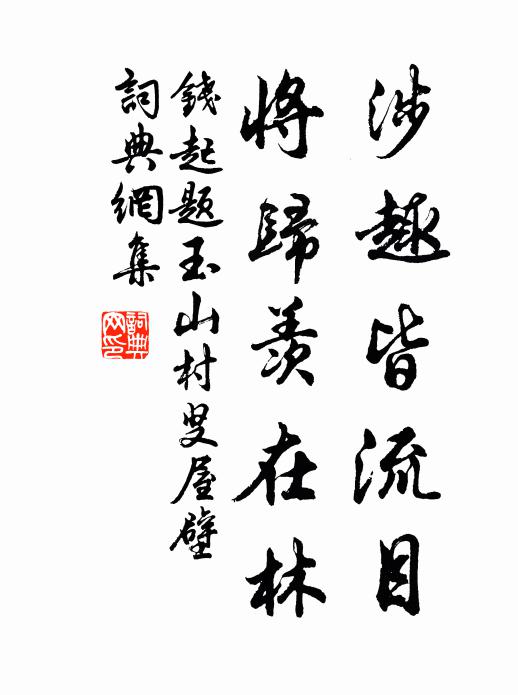 涉趣皆流目
將歸羨在林
錢起題玉山村叟屋壁
詞典網集
詞典網印